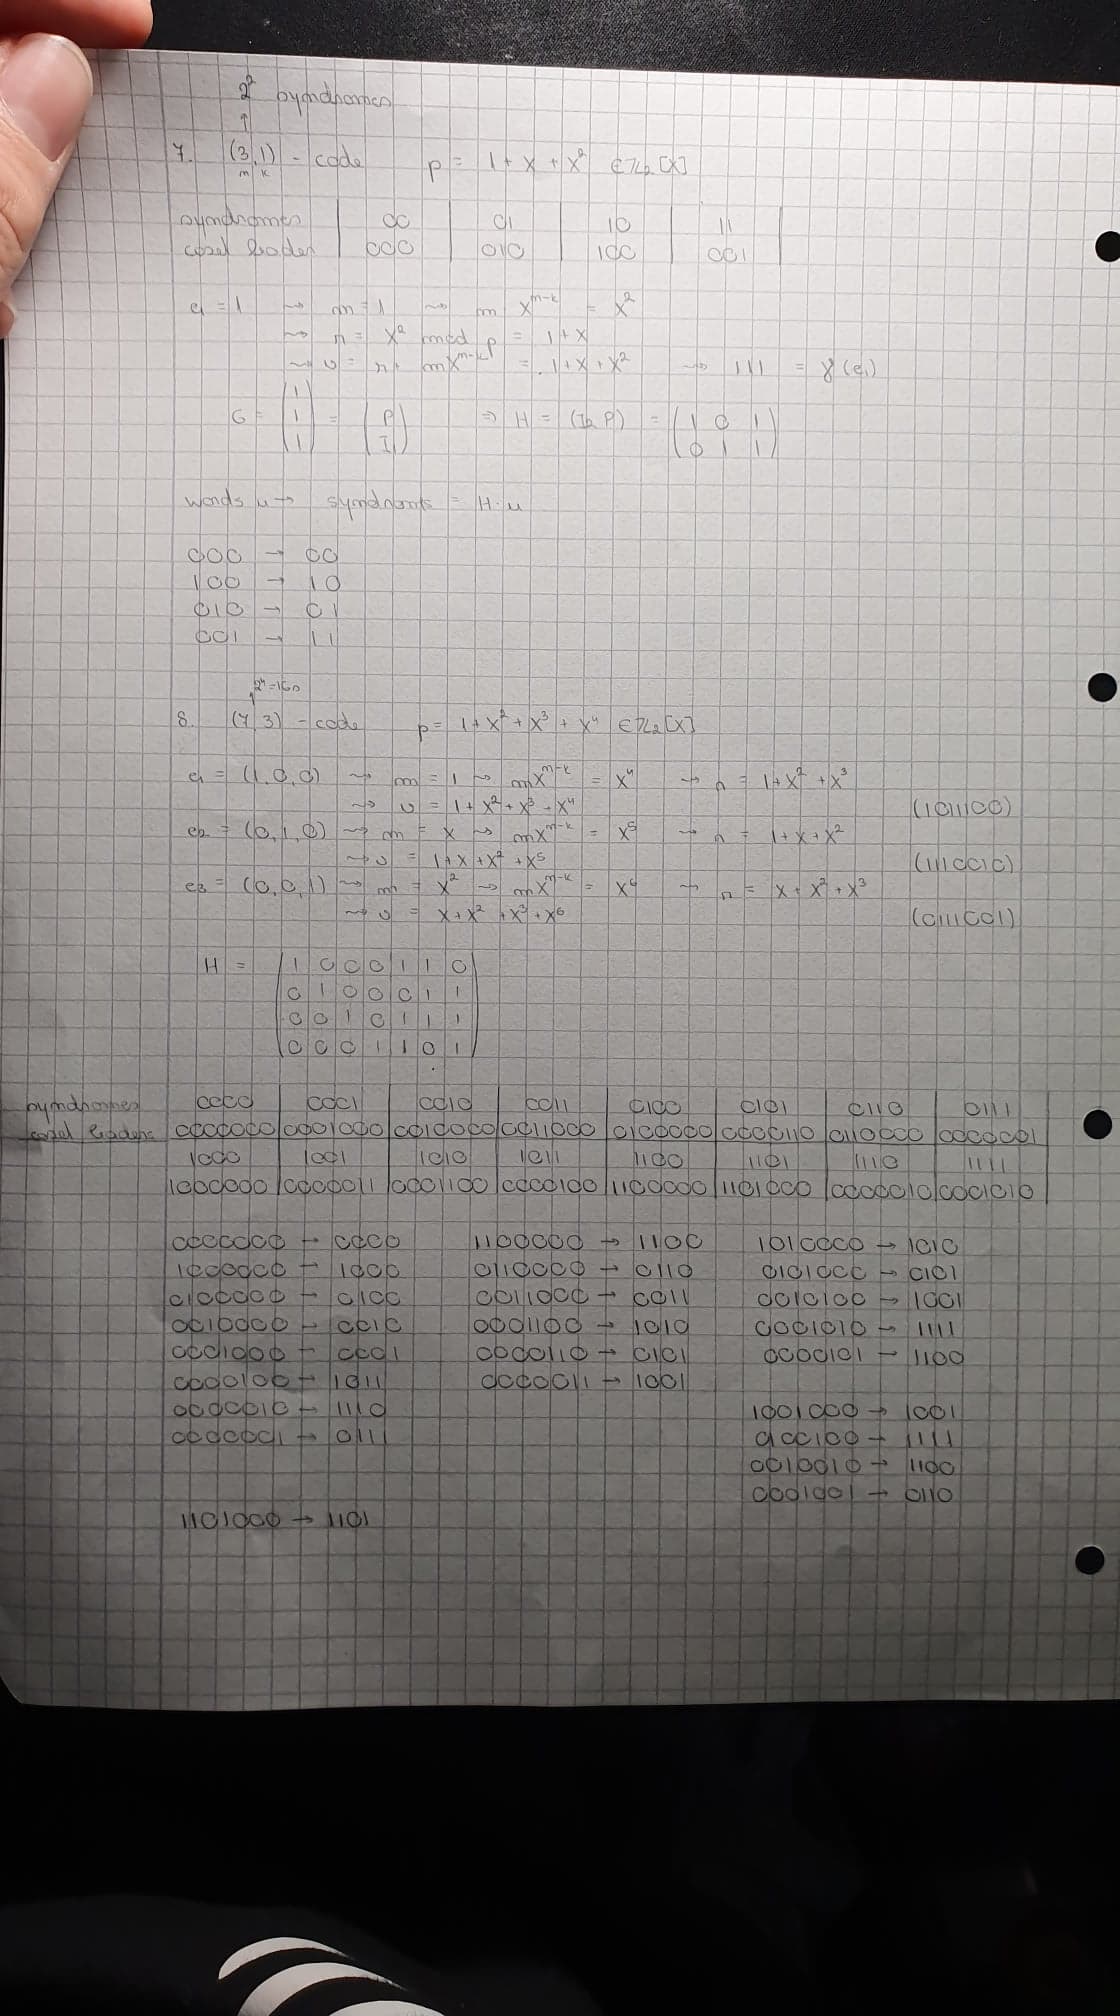 2² syndromes
↑
7. (3,1) - code p = 1 + x + x² ∈ ℤ₂[X]
n k
syndromes | 00 | 01 | 10 | 11
coset leaders | 000 | 010 | 100 | 001
e₁ = 1 ⇝ m = 1 ⇝ m x^(n-k) = x²
⇝ r = x² mod p = 1 + x
⇝ v = r + m x^(n-k) = 1 + x + x² ⇝ 111 = γ(e₁)
G = (1 1 1) = (P I) ⇒ H = (I₂ P) = (1 0 1
0 1 1)
words u → syndroms = H·u
000 → 00
100 → 10
010 → 01
001 → 11
2⁴=16
8. (7,3) - code p = 1 + x² + x³ + x⁴ ∈ ℤ₂[X]
e₁ = (1,0,0) ⇝ m = 1 ⇝ m x^(n-k) = x⁴ ⇝ r = 1 + x² + x³
⇝ v = 1 + x² + x³ + x⁴ (1011100)
e₂ = (0,1,0) ⇝ m = x ⇝ m x^(n-k) = x⁵ ⇝ r = 1 + x + x²
⇝ v = 1 + x + x² + x⁵ (1110010)
e₃ = (0,0,1) ⇝ m = x² ⇝ m x^(n-k) = x⁶ ⇝ r = x + x² + x³
⇝ v = x + x² + x³ + x⁶ (0111001)
H = (1 0 0 0 1 1 0
0 1 0 0 0 1 1
0 0 1 0 1 1 1
0 0 0 1 1 0 1)
syndromes | 0000 | 0001 | 0010 | 0011 | 0100 | 0101 | 0110 | 0111
coset leaders | 0000000 | 0001000 | 0010000 | 0011000 | 0100000 | 0000110 | 0110000 | 0000001
1000 | 1001 | 1010 | 1011 | 1100 | 1101 | 1110 | 1111
1000000 | 0000011 | 0001100 | 0000100 | 1100000 | 1101000 | 0000010 | 0001010
0000000 → 0000 1100000 → 1100 1010000 → 1010
1000000 → 1000 0110000 → 0110 0101000 → 0101
0100000 → 0100 0011000 → 0011 0010100 → 1001
0010000 → 0010 0001100 → 1010 0001010 → 1111
0001000 → 0001 0000110 → 0101 0000101 → 1100
0000100 → 1011 0000011 → 1001
0000010 → 1110 1001000 → 1001
0000001 → 0111 → 1111
0010010 → 1100
0001001 → 0110
1101000 → 1101